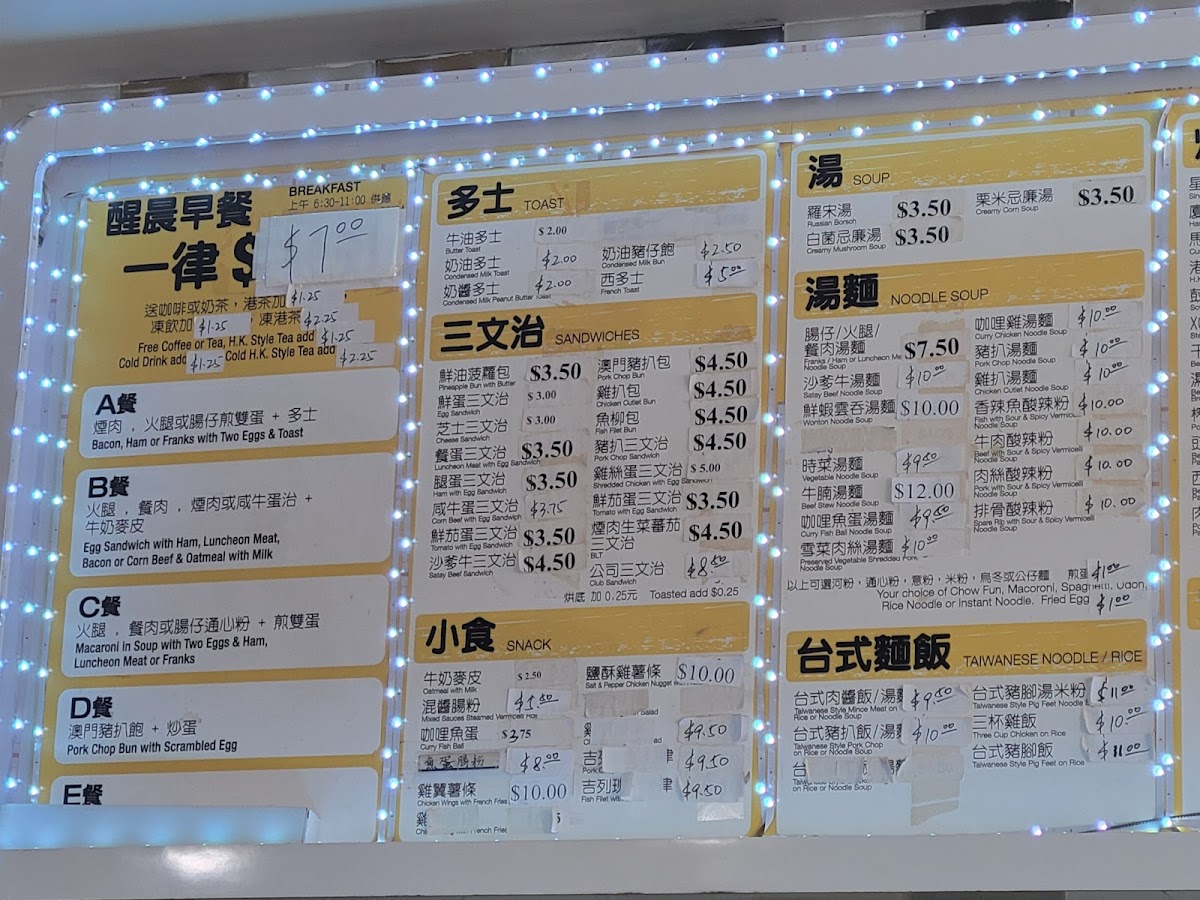 醒晨早餐
BREAKFAST
上午 6:30-11:00 供餐
一律 $
$7.00
送咖啡或奶茶，港茶加 $1.25
凍飲加 $1.25 , 凍港茶 $2.25
Free Coffee or Tea, H.K. Style Tea add $1.25
Cold Drink add $1.25 Cold H.K. Style Tea add $2.25
A餐
煙肉，火腿或腸仔煎雙蛋 + 多士
Bacon, Ham or Franks with Two Eggs & Toast
B餐
火腿，餐肉，煙肉或咸牛蛋治 +
牛奶麥皮
Egg Sandwich with Ham, Luncheon Meat,
Bacon or Corn Beef & Oatmeal with Milk
C餐
火腿，餐肉或腸仔通心粉 + 煎雙蛋
Macaroni in Soup with Two Eggs & Ham,
Luncheon Meat or Franks
D餐
澳門豬扒飽 + 炒蛋
Pork Chop Bun with Scrambled Egg
E餐
多士 TOAST
牛油多士 $2.00
Butter Toast
奶油多士 $2.00
Condensed Milk Toast
奶醬多士 $2.00
Condensed Milk Peanut Butter Toast
奶油豬仔飽 $2.50
Condensed Milk Bun
西多士 $5.00
French Toast
三文治 SANDWICHES
鮮油菠蘿包 $3.50
Pineapple Bun with Butter
鮮蛋三文治 $3.00
Egg Sandwich
芝士三文治 $3.00
Cheese Sandwich
餐蛋三文治 $3.50
Luncheon Meat with Egg Sandwich
腿蛋三文治 $3.50
Ham with Egg Sandwich
咸牛蛋三文治 $3.75
Corn Beef with Egg Sandwich
鮮茄蛋三文治 $3.50
Tomato with Egg Sandwich
沙爹牛三文治 $4.50
Satay Beef Sandwich
澳門豬扒包 $4.50
Pork Chop Bun
雞扒包 $4.50
Chicken Cutlet Bun
魚柳包 $4.50
Fish Filet Bun
豬扒三文治 $4.50
Pork Chop Sandwich
雞絲蛋三文治 $5.00
Shredded Chicken with Egg Sandwich
鮮茄蛋三文治 $3.50
Tomato with Egg Sandwich
煙肉生菜蕃茄
三文治 $4.50
BLT
公司三文治 $8.50
Club Sandwich
烘底 加 0.25元 Toasted add $0.25
小食 SNACK
牛奶麥皮 $2.50
Oatmeal with Milk
混醬腸粉 $5.50
Mixed Sauces Steamed Vermicelli Roll
咖哩魚蛋 $3.75
Curry Fish Ball
魚蛋腸粉 $8.00
雞翼薯條 $10.00
Chicken Wings with French Fries
雞
with French Fries
鹽酥雞薯條 $10.00
Salt & Pepper Chicken Nugget
Salad
$9.50
吉 $9.50
吉列 $9.50
Fish Filet
湯 SOUP
羅宋湯 $3.50
Russian Borsch
白菌忌廉湯 $3.50
Creamy Mushroom Soup
栗米忌廉湯 $3.50
Creamy Corn Soup
湯麵 NOODLE SOUP
腸仔/火腿/
餐肉湯麵 $7.50
Franks / Ham or Luncheon Meat
Noodle Soup
沙爹牛湯麵 $10.00
Satay Beef Noodle Soup
鮮蝦雲吞湯麵 $10.00
Wonton Noodle Soup
時菜湯麵 $9.50
Vegetable Noodle Soup
牛腩湯麵 $12.00
Beef Stew Noodle Soup
咖哩魚蛋湯麵 $9.50
Curry Fish Ball Noodle Soup
雪菜肉絲湯麵 $10.00
Preserved Vegetable Shredded Pork
Noodle Soup
咖哩雞湯麵 $10.00
Curry Chicken Noodle Soup
豬扒湯麵 $10.00
Pork Chop Noodle Soup
雞扒湯麵 $10.00
Chicken Cutlet Noodle Soup
香辣魚酸辣粉 $10.00
Fish with Sour & Spicy Vermicelli
Noodle Soup
牛肉酸辣粉 $10.00
Beef with Sour & Spicy Vermicelli
Noodle Soup
肉絲酸辣粉 $10.00
Pork with Sour & Spicy Vermicelli
Noodle Soup
排骨酸辣粉 $10.00
Spare Rib with Sour & Spicy Vermicelli
Noodle Soup
以上可選河粉，通心粉，意粉，米粉，烏冬或公仔麵 煎蛋 $1.00
Your choice of Chow Fun, Macaroni, Spaghetti, Udon,
Rice Noodle or Instant Noodle. Fried Egg $1.00
台式麵飯 TAIWANESE NOODLE / RICE
台式肉醬飯/湯麵 $9.50
Taiwanese Style Mince Meat on
Rice or Noodle Soup
台式豬扒飯/湯麵 $10.00
Taiwanese Style Pork Chop
on Rice or Noodle Soup
台
on Rice or Noodle Soup
台式豬腳湯米粉 $11.00
Taiwanese Style Pig Feet Noodle
三杯雞飯 $10.00
Three Cup Chicken on Rice
台式豬腳飯 $11.00
Taiwanese Style Pig Feet on Rice